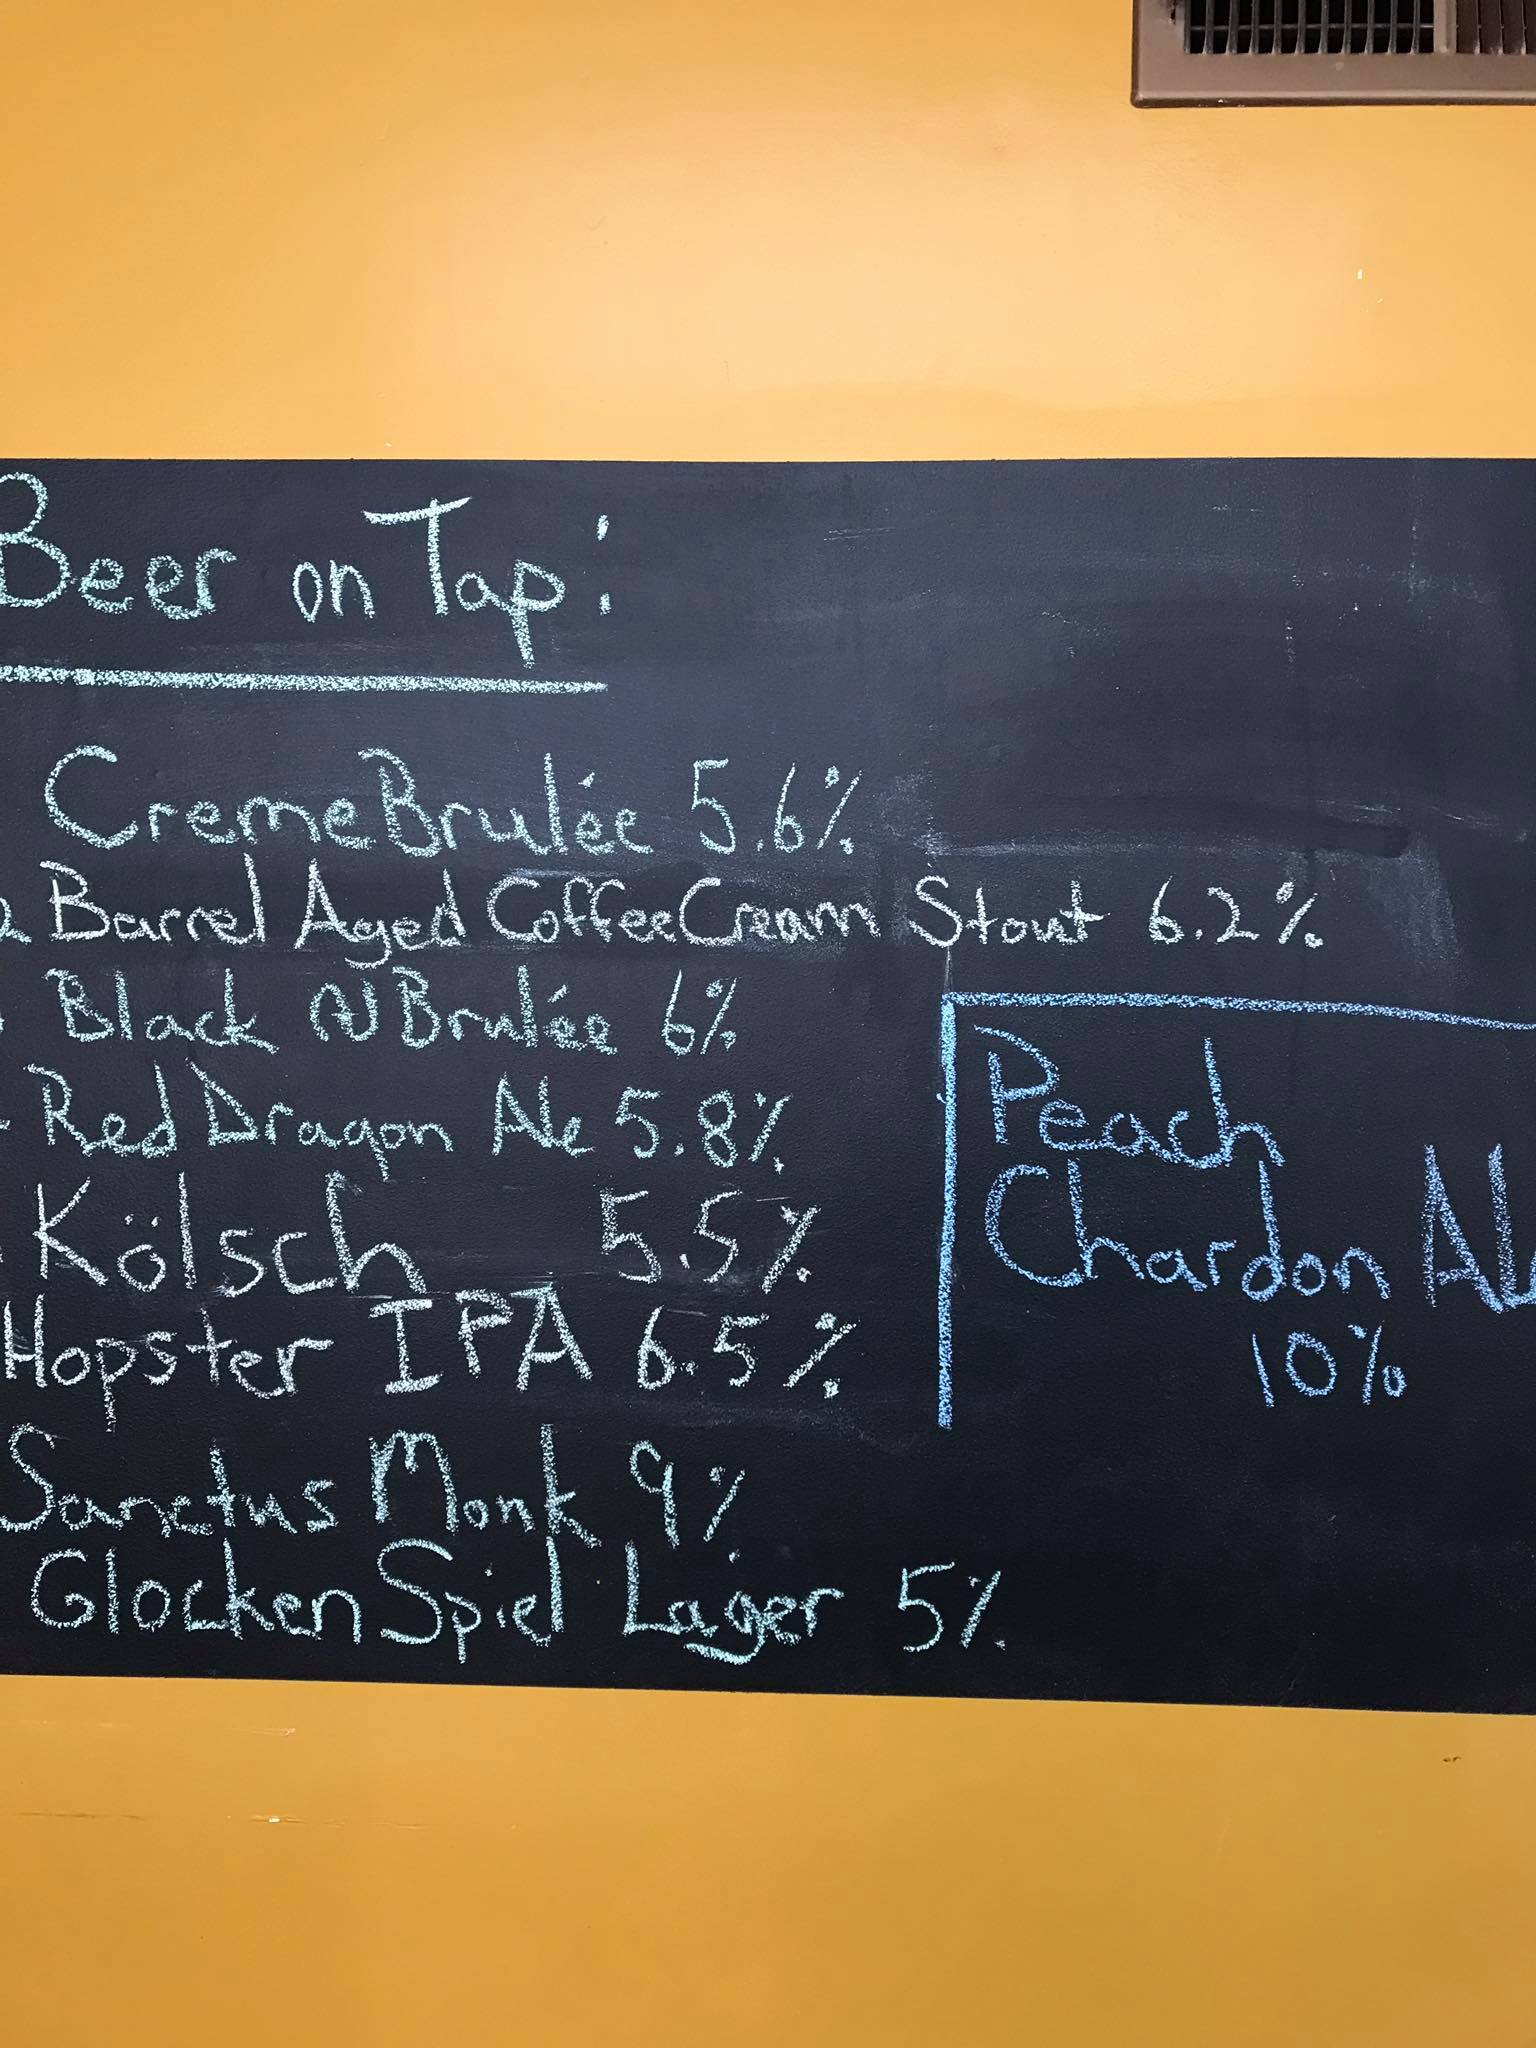 Beer on Tap:
CremeBrulée 5.6%
Barrel Aged CoffeeCream Stout 6.2%
Black N Brulée 6%
Red Dragon Ale 5.8%
Kölsch 5.5%
Hopster IPA 6.5%
Sanctus Monk 9%
GlockenSpiel Lager 5%
Peach
Chardon Al
10%